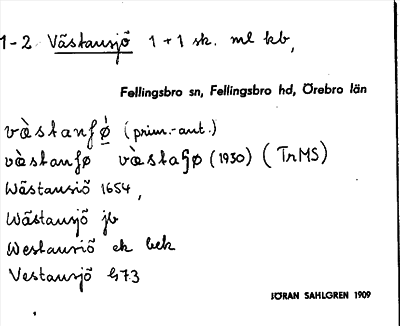 1-2 Västansjö 1 + 1 sk. ml kb,
Fellingsbro sn, Fellingsbro hd, Örebro län
(prim.-ant.)
(1930) (TrMS)
Wästansiö 1654,
Wästansjö jb
Westansiö ek bek
Vestansjö h73
JÖRAN SAHLGREN 1909